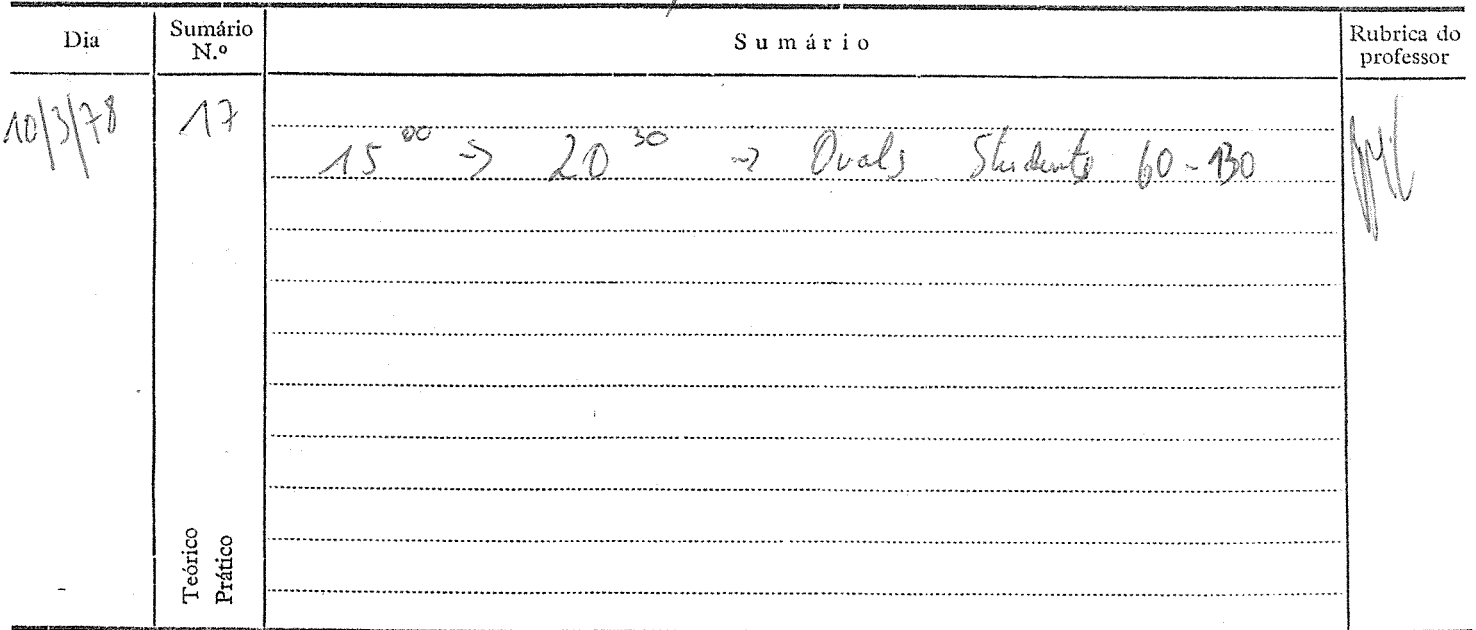 Dia Sumário N.º Sumário Rubrica do professor
10/3/78 17
15⁰⁰ -> 20³⁰ -> Orals Students 60-130
Teórico
Prático